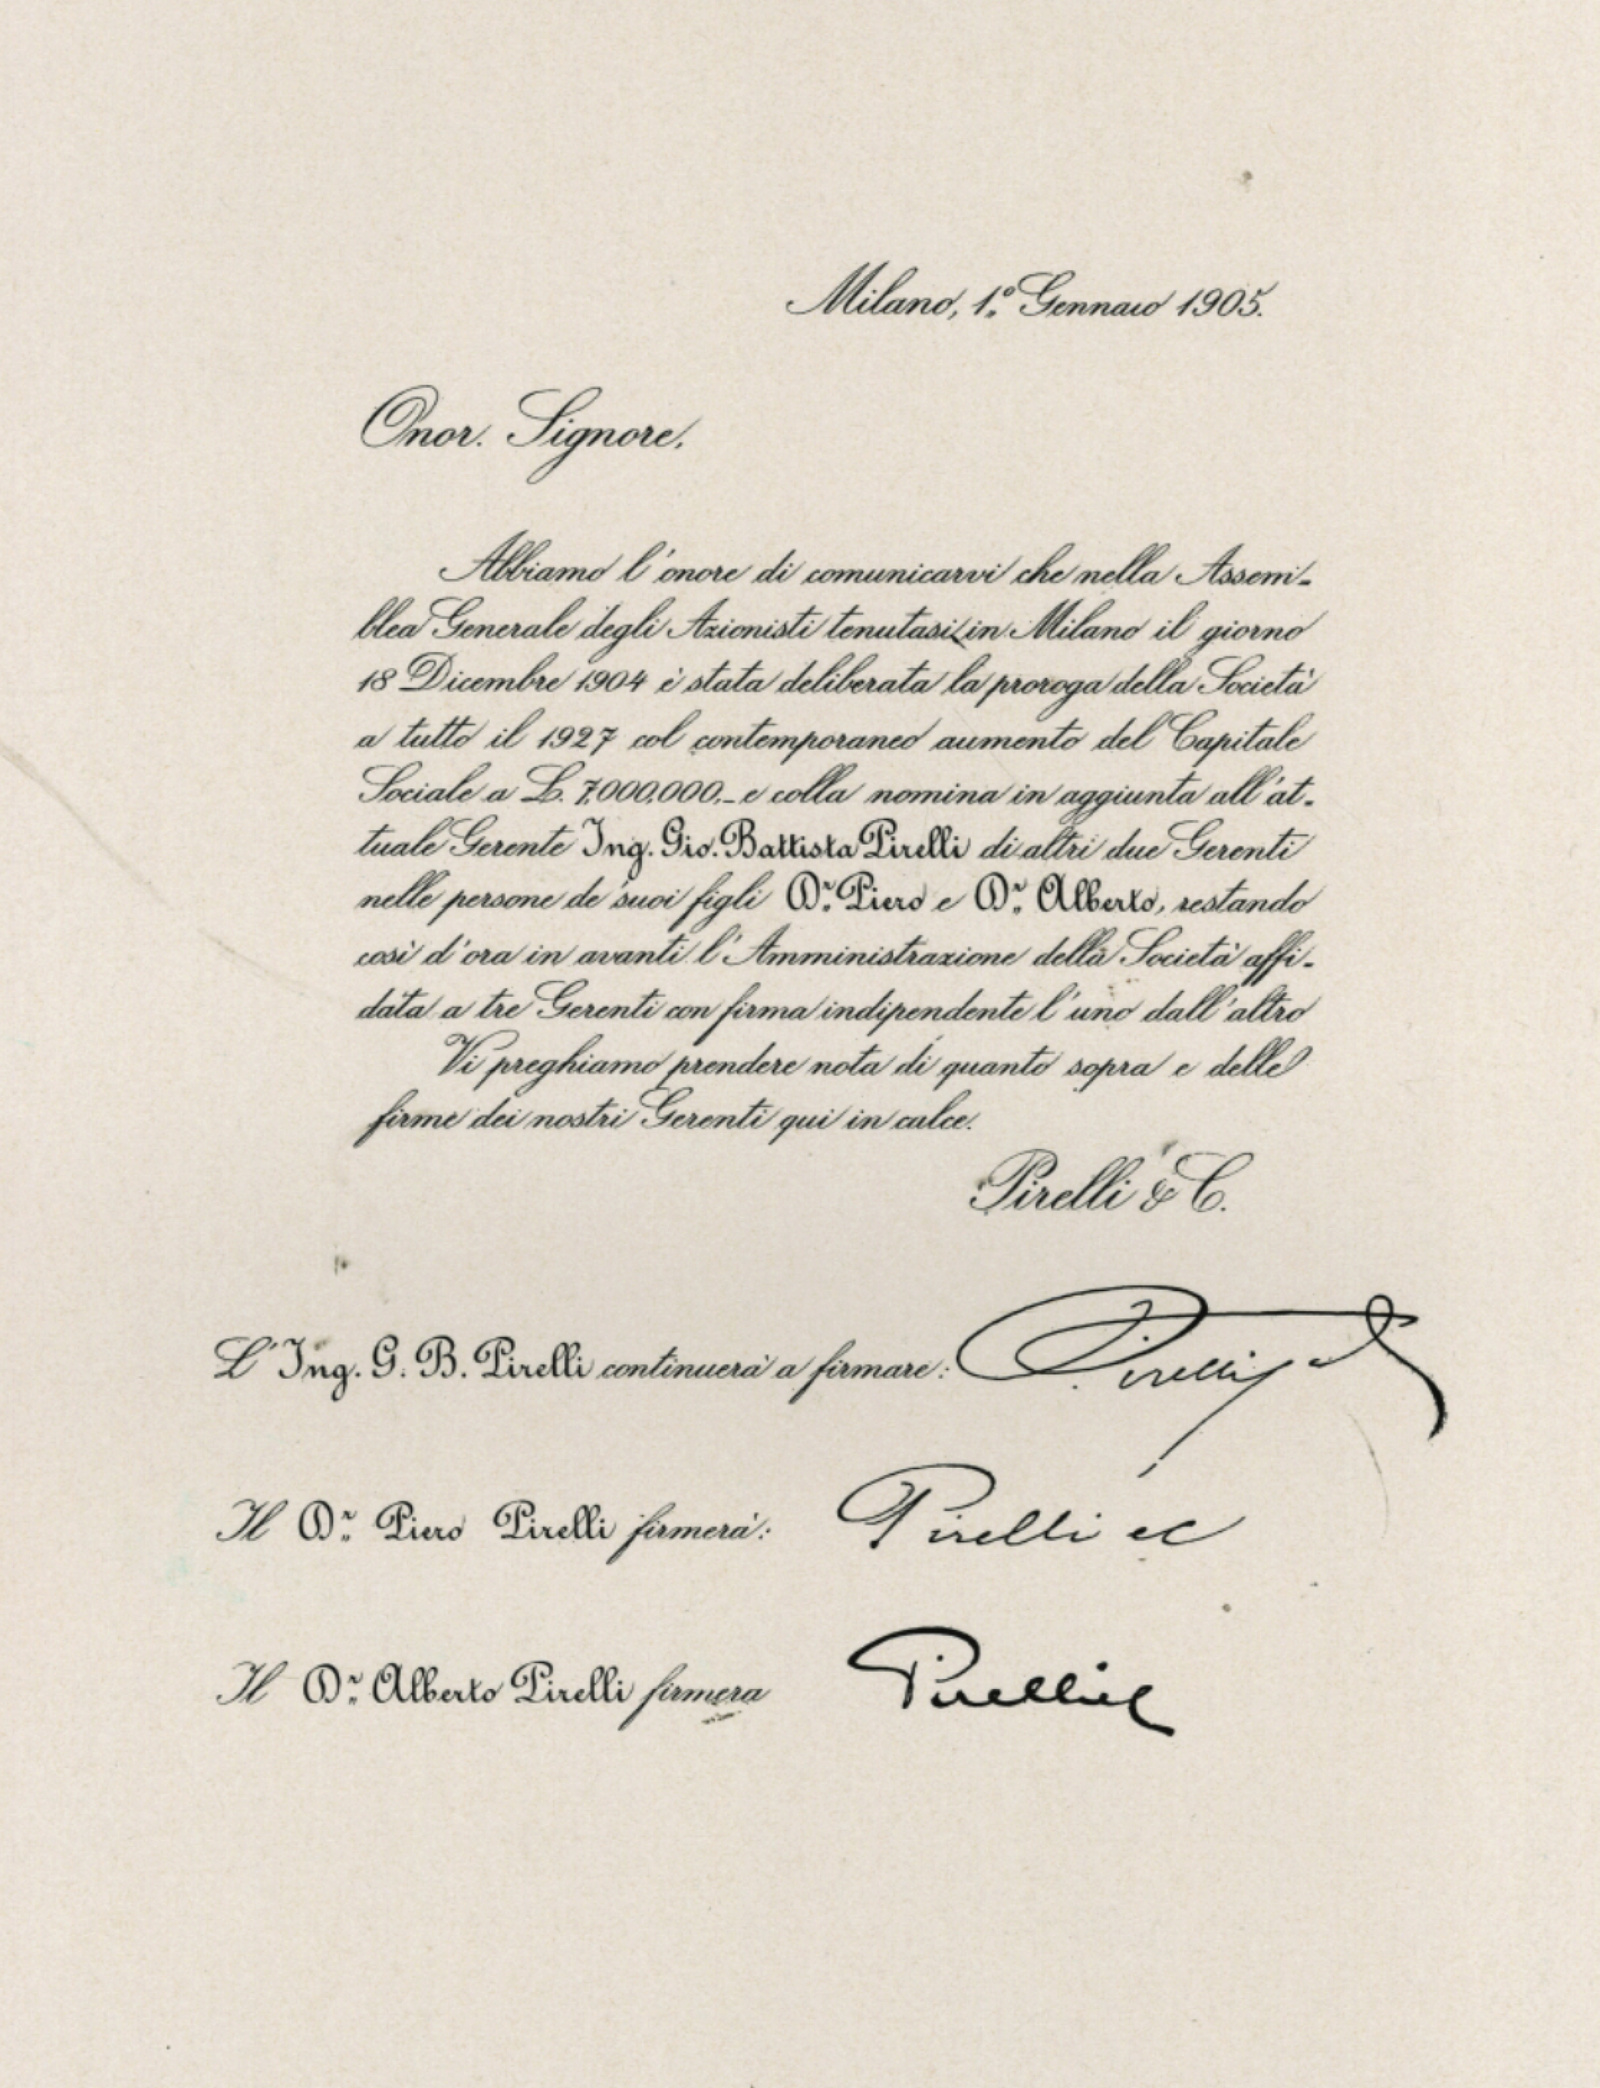 Milano, 1.º Gennaio 1905.
Onor. Signore,
Abbiamo l'onore di comunicarvi che nella Assem-
blea Generale degli Azionisti tenutasi in Milano il giorno
18 Dicembre 1904 è stata deliberata la proroga della Società
a tutto il 1927 col contemporaneo aumento del Capitale
Sociale a L. 7,000,000.- e colla nomina in aggiunta all'at-
tuale Gerente Ing. Gio. Battista Pirelli di altri due Gerenti
nelle persone de' suoi figli Dr. Piero e Dr. Alberto, restando
così d'ora in avanti l'Amministrazione della Società affi-
data a tre Gerenti con firma indipendente l'uno dall'altro
Vi preghiamo prendere nota di quanto sopra e delle
firme dei nostri Gerenti qui in calce.
Pirelli & C.
L'Ing. G. B. Pirelli continuerà a firmare: Pirelli
Il Dr. Piero Pirelli firmerà: Pirelli eC
Il Dr. Alberto Pirelli firmera Pirelli